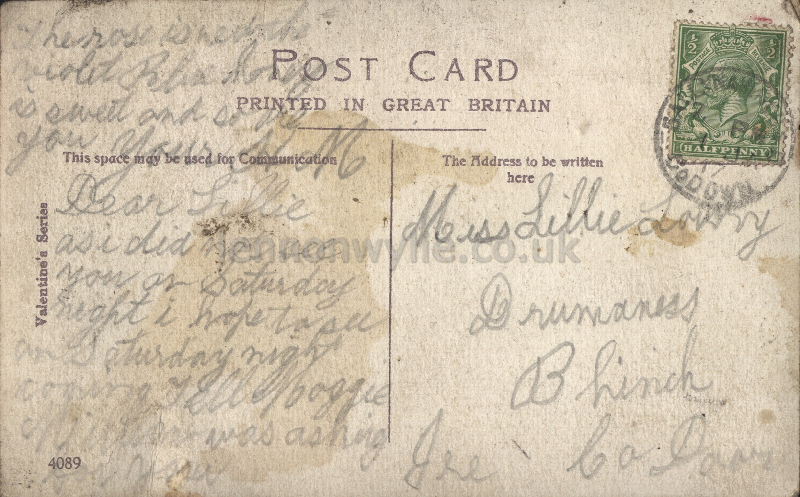 The rose is red the
violet
is sweet and so
you Yours M
POST CARD
PRINTED IN GREAT BRITAIN
This space may be used for Communication
The Address to be written
here
Valentine's Series
Dear Lillie
as i did not see
you on Saturday
night i hope to see
on Saturday night
coming Tell Maggie
was asking
for
4089
Miss Lillie Lowry
Drumaness
B hinch
Co Down
Ire
HALFPENNY
lennonwylie.co.uk